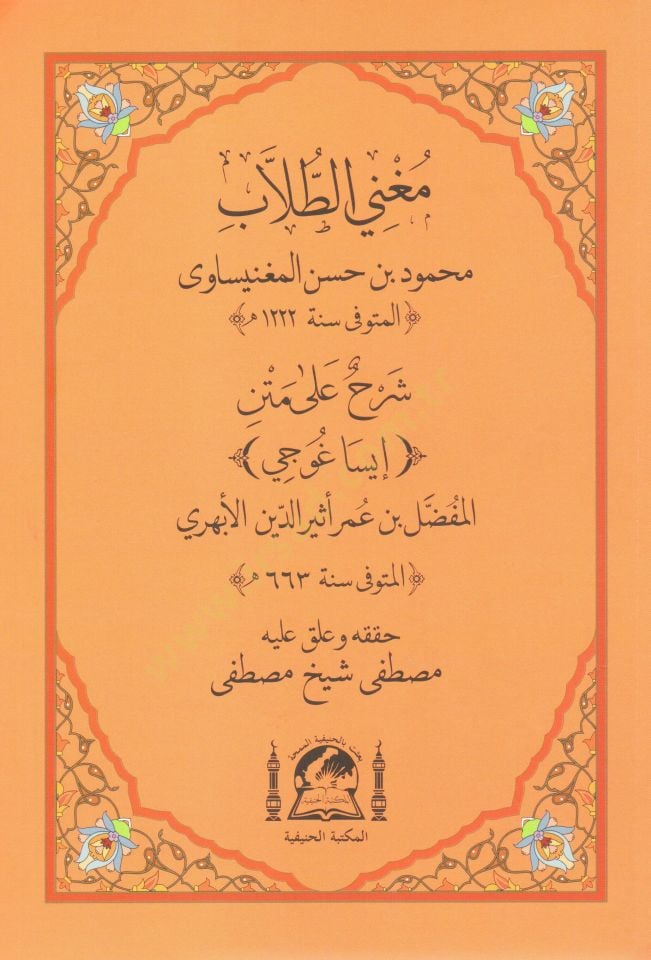 مُغْنِي الطُّلاَّبِ
محمود بن حسن المغنيساوى
﴿ المتوفى سنة ١٢٢٢ هـ ﴾
شَرْحٌ عَلَى مَتْنِ
﴿ إيسَا غُوجِي ﴾
المُفَضَّل بن عُمر أثير الدّين الأبهري
﴿ المتوفى سنة ٦٦٣ هـ ﴾
حققه وعلق عليه
مصطفى شيخ مصطفى
بعثت بالحنيفية السمحة
المكتبة الحنيفية
المكتبة الحنيفية